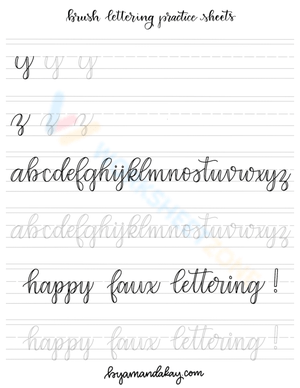 brush lettering practice sheets
y y y
z z z
abcdefghijklmnopqrstuvwxyz
abcdefghijklmnopqrstuvwxyz
happy faux lettering !
happy faux lettering !
byamandakay.com
WORKSHEET ZONE